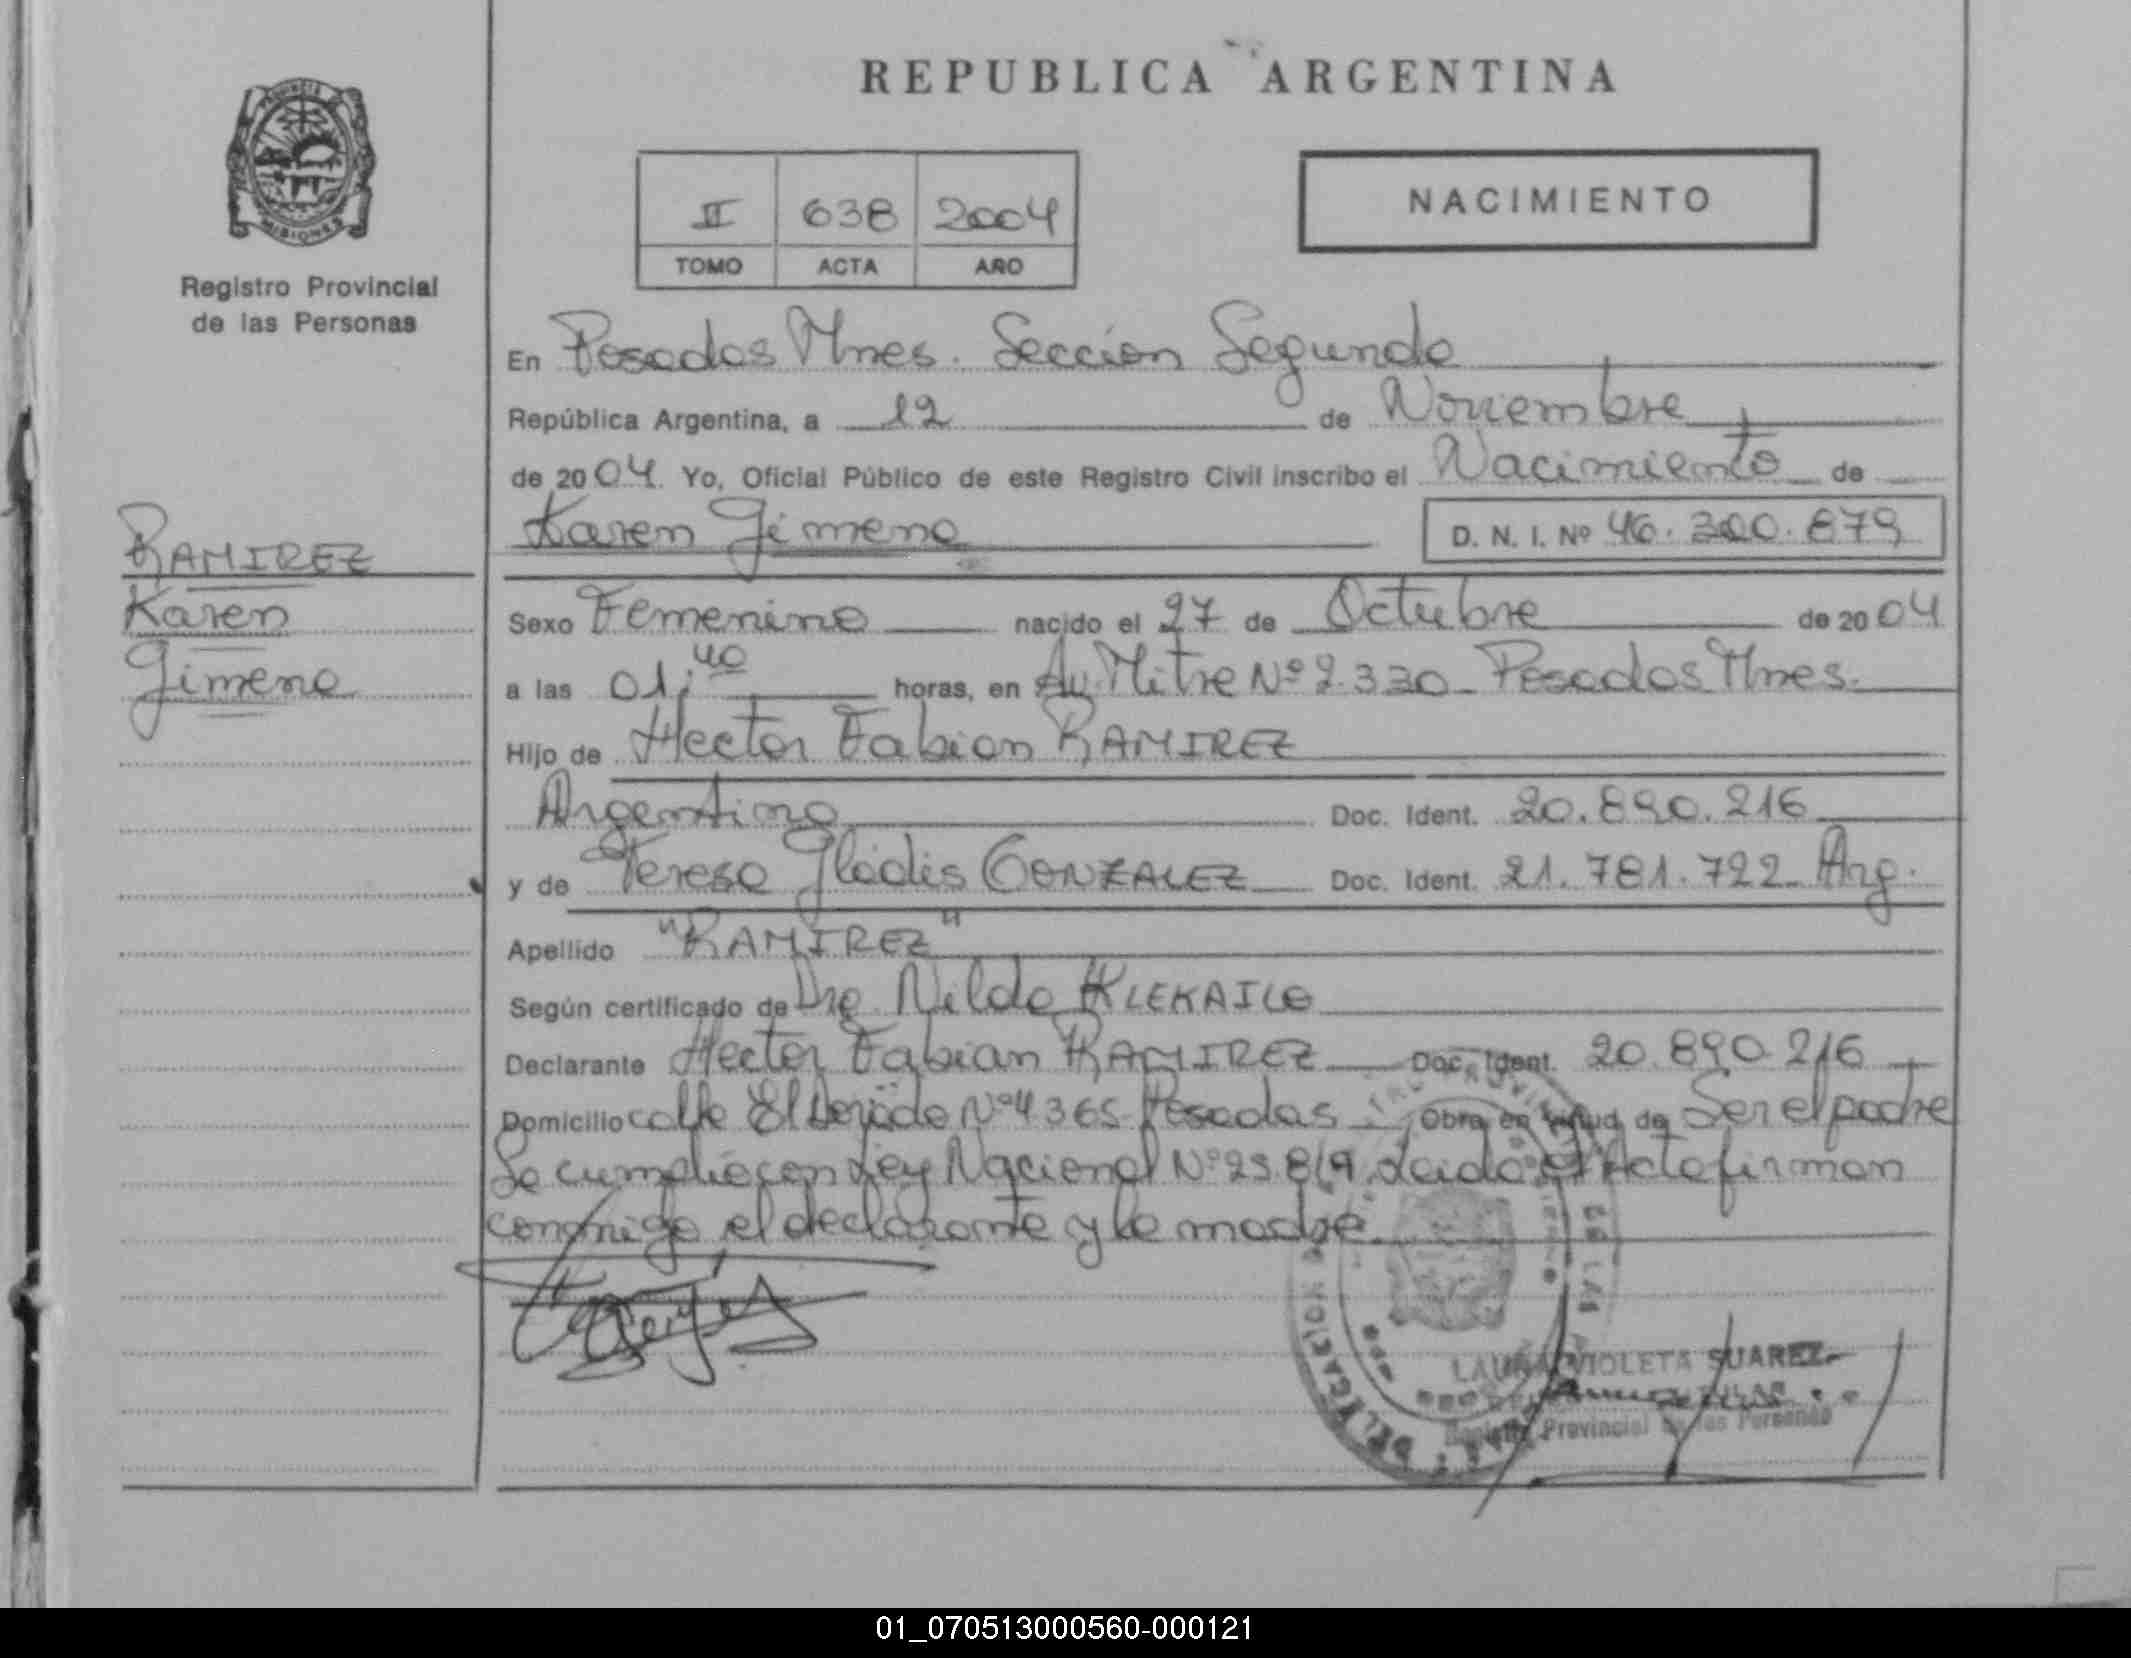 REPUBLICA ARGENTINA
PROVINCIA DE
MISIONES
Registro Provincial
de las Personas
II 638 2004
TOMO ACTA AÑO
NACIMIENTO
En Posadas Mnes. Sección Segunda
República Argentina, a 12 de Noviembre
de 2004 Yo, Oficial Público de este Registro Civil inscribo el Nacimiento de
Karen Jimena D. N. I. Nº 46.300.879
RAMIREZ
Karen
Jimena
Sexo Femenino nacido el 27 de Octubre de 2004
a las 01;40 horas, en Av. Mitre Nº 2.330 Posadas Mnes.
Hijo de Hector Fabian RAMIREZ
Argentina Doc. Ident. 20.890.216
y de Teresa Gladis GONZALEZ Doc. Ident. 21.781.722 Arg.
Apellido "RAMIREZ"
Según certificado de Dra. Nilda KLEKAILO
Declarante Hector Fabian RAMIREZ Doc. Ident. 20.890.216
Domicilio calle El Dorado Nº 4365 Posadas Obra en virtud de Ser el padre
Se cumplio con Ley Nacional Nº 25.819. Leida el Acta firman
conmigo el declarante y la madre.
LAURA VIOLETA SUAREZ
Registro Provincial de las Personas
01_070513000560-000121